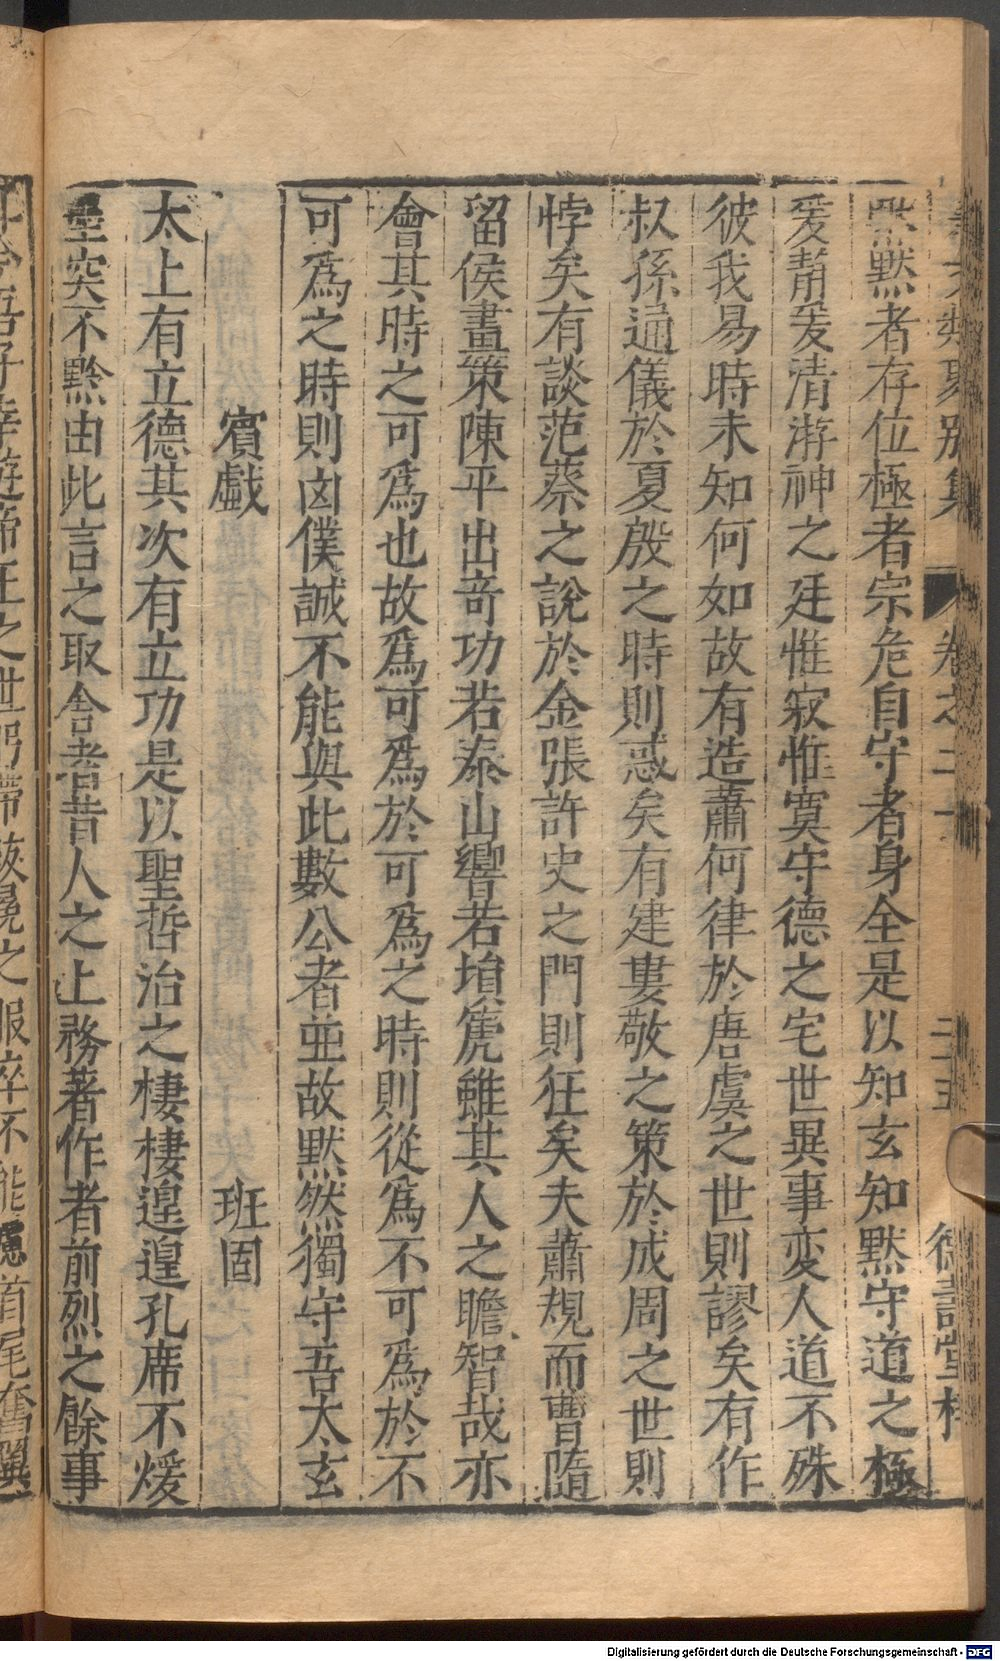 卷之二十
二十五
德壽堂梓
默默者存位極者宗危自守者身全是以知玄知默守道之極
爰靜爰清游神之廷惟寂惟寞守德之宅世異事変人道不殊
彼我易時未知何如故有造蕭何律於唐虞之世則謬矣有作
叔孫通儀於夏殷之時則惑矣有建婁敬之策於成周之世則
悖矣有談范蔡之說於金張許史之門則狂矣夫蕭規而曹隨
留侯畫策陳平出竒功若泰山響若塤箎雖其人之瞻智哉亦
會其時之可爲也故爲可爲於可爲之時則從爲不可爲於不
可爲之時則凶僕誠不能與此數公者並故默然獨守吾太玄
賓戯 班固
太上有立德其次有立功是以聖哲治之棲棲遑遑孔席不煖
墨突不黔由此言之取舎者昔人之上務著作者前烈之餘事
Digitalisierung gefördert durch die Deutsche Forschungsgemeinschaft - DFG